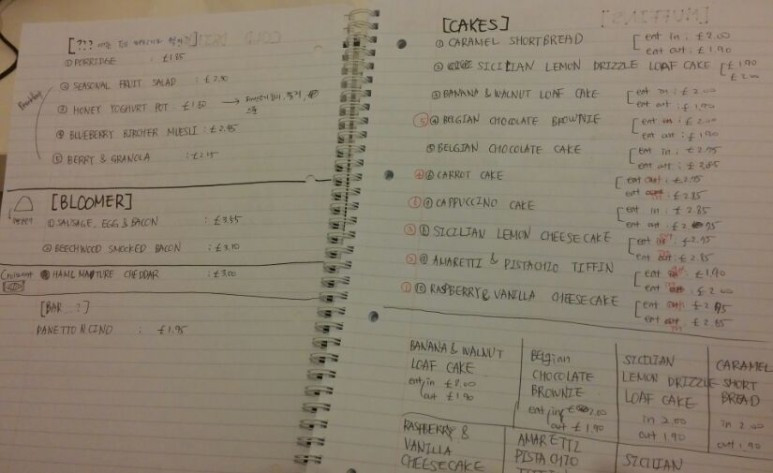 [???
① PORRIDGE : £1.85
② SEASONAL FRUIT SALAD : £2.90
③ HONEY YOGHURT POT £1.50 →
④ BLUEBERRY BIRCHER MUESLI : £2.95
⑤ BERRY & GRANOLA :
[BLOOMER]
① SAUSAGE, EGG & BACON : £3.95
② BEECHWOOD SMOCKED BACON : £3.10
HAM & MAPTURE CHEDDAR : £3.00
[BAR ... ?]
PANETTO NCINO : £1.95
[CAKES]
① CARAMEL SHORTBREAD [eat in : £2.00
eat out : £1.90
② SICILIAN LEMON DRIZZLE LOAF CAKE [£1.90
£2.00
③ BANANA & WALNUT LOAF CAKE [eat in : £2.00
eat out : £1.90
④ BELGIAN CHOCOLATE BROWNIE [eat in : £2.00
eat out : £1.90
⑤ BELGIAN CHOCOLATE CAKE [eat in : £2.95
eat out : £2.85
⑥ CARROT CAKE [eat £2.95
eat £2.85
CAPPUCCINO CAKE [eat in : £2.85
eat out : £2
SICILIAN LEMON CHEESECAKE [eat in : £2.95
eat out : £2.85
AMARETTI & PISTACHIO TIFFIN [eat £1.90
eat £2.00
⑩ RASPBERRY & VANILLA CHEESECAKE [eat £2.95
eat £2.85
BANANA & WALNUT
LOAF CAKE
eat in £2.00
out £1.90
Belgian
CHOCOLATE
BROWNIE
eat in £2.00
out £1.90
SICILIAN
LEMON DRIZZLE
LOAF CAKE
in 2.00
out 1.90
CARAMEL
SHORT
BREAD
in 2.00
out 1.90
RASPBERRY &
VANILLA
CHEESECAKE
AMARETTI
PISTACHIO
SICILIAN